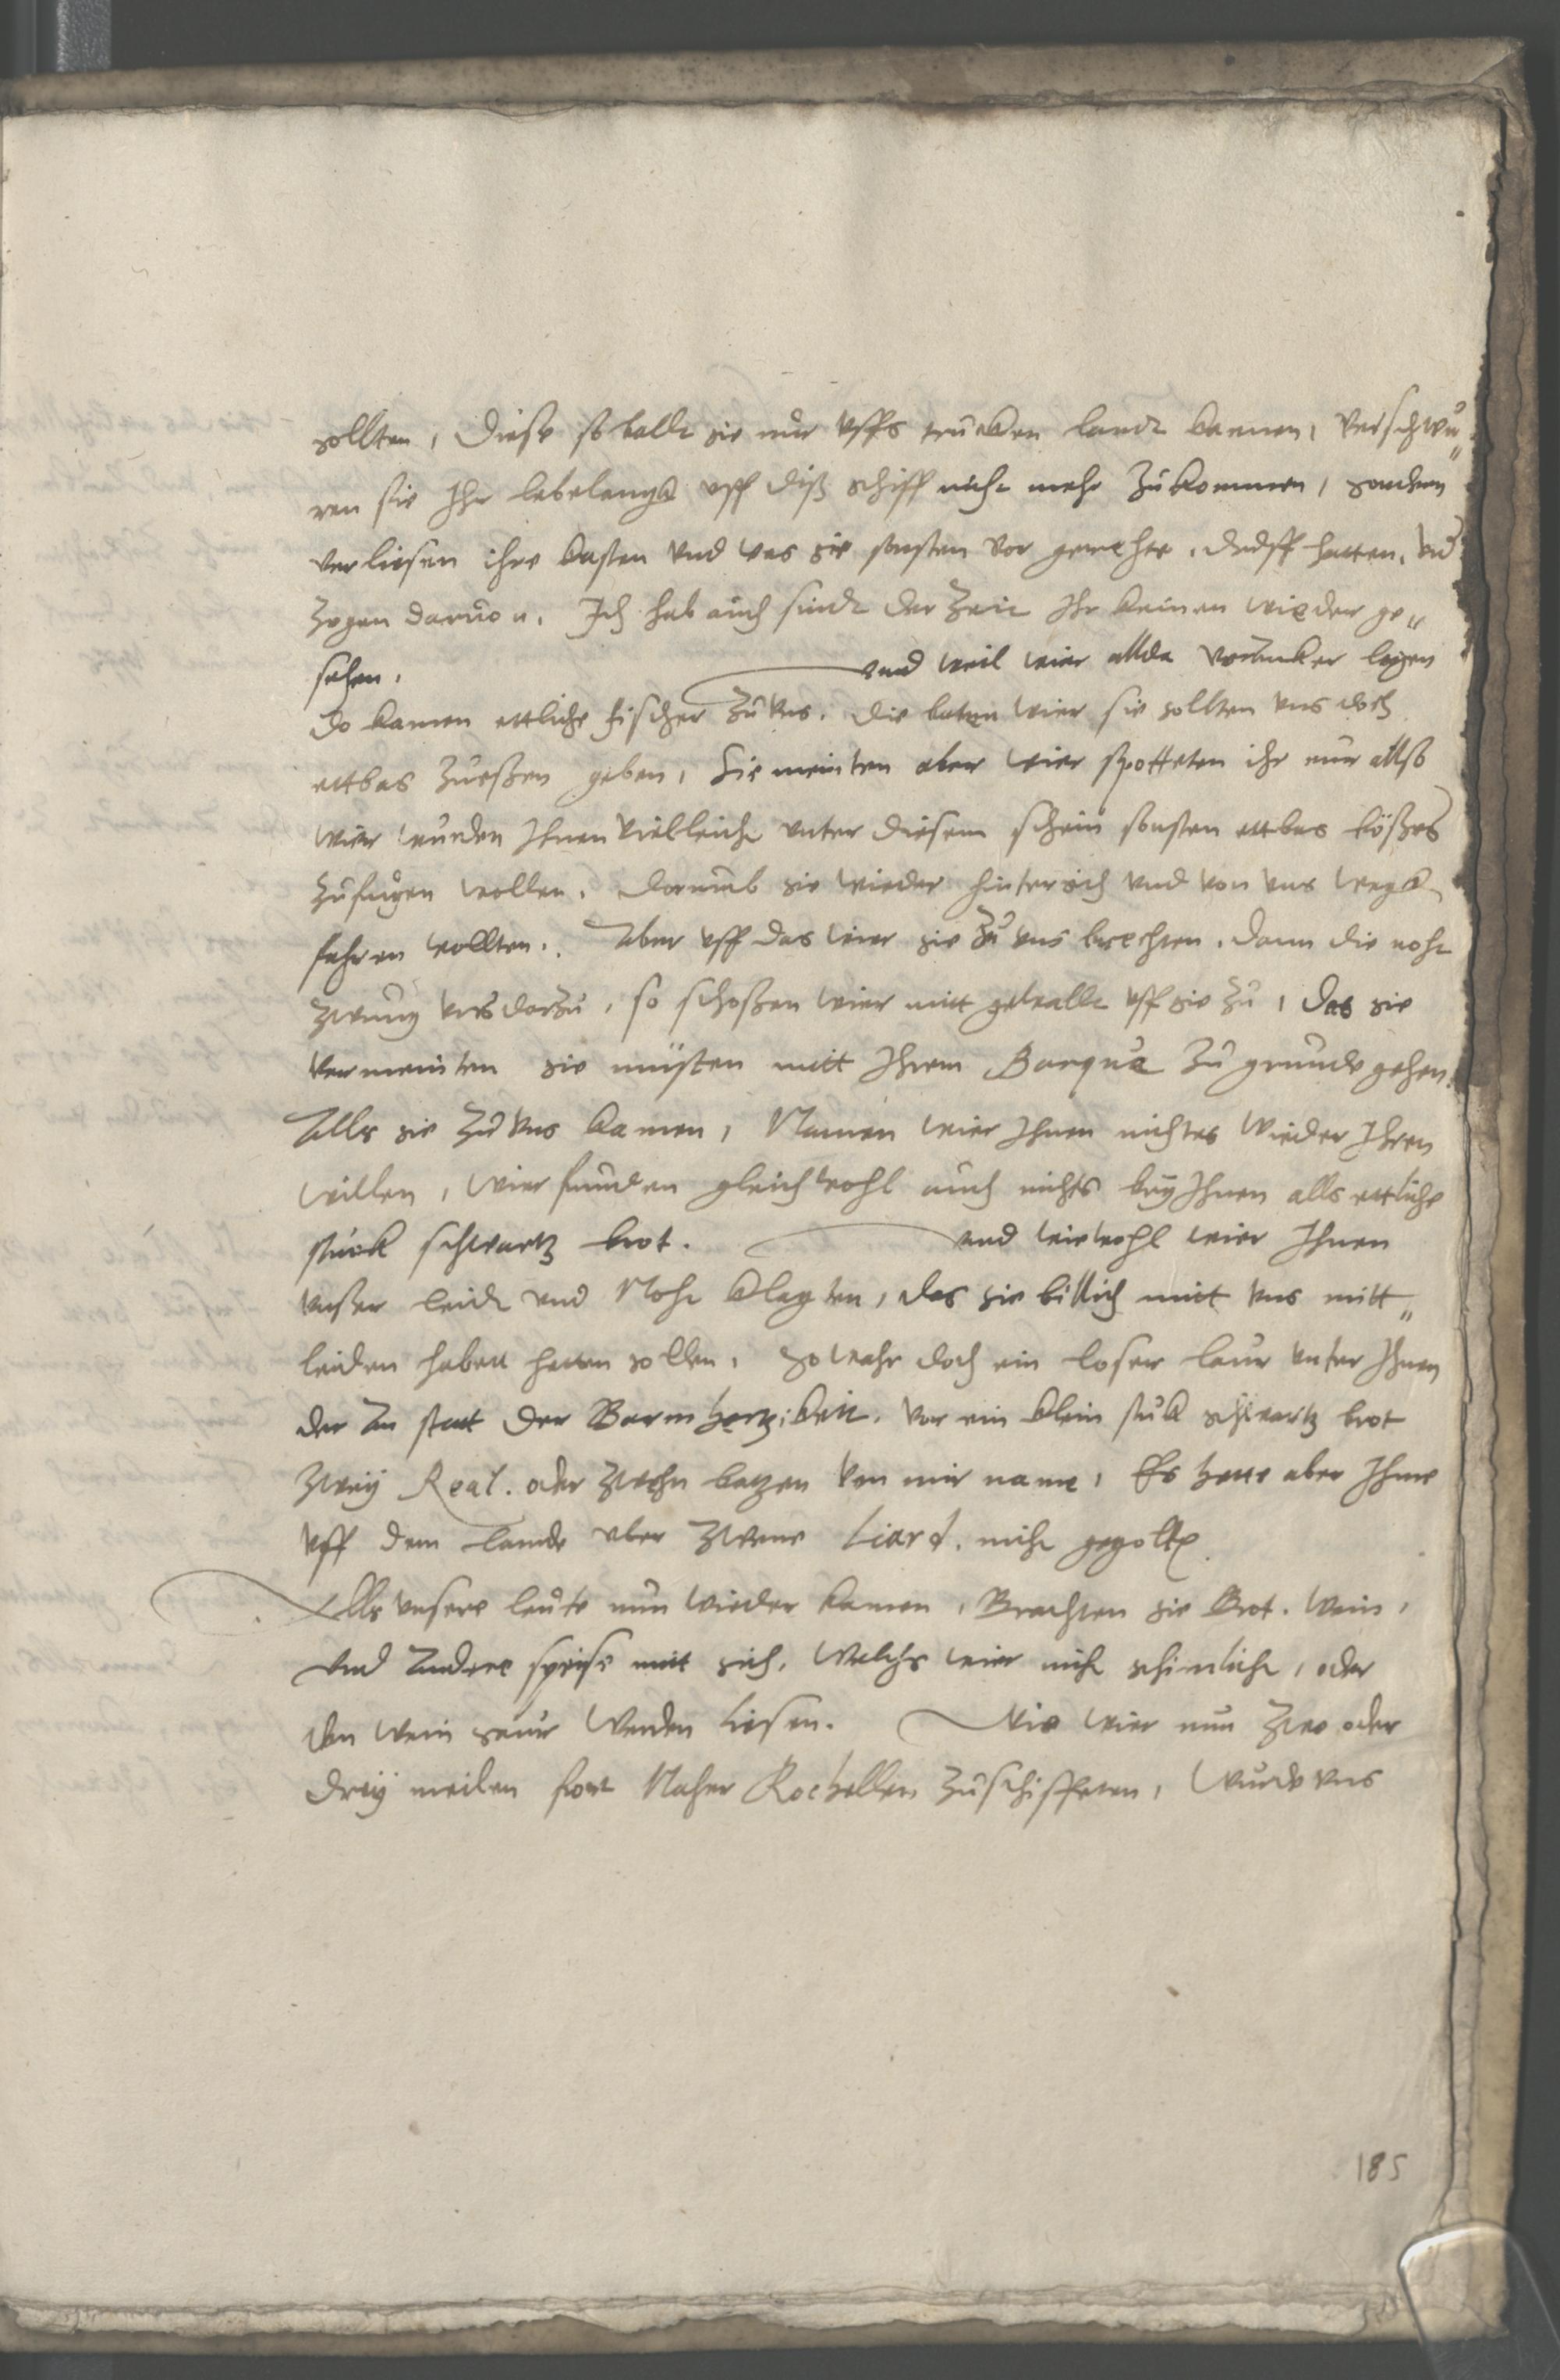 sollten, Diese so balt sie nur vffs trucken landt kamen, verschwu„
ren sie Ihr lebelangk vff diß schiff nicht mehr zu kommen, sondern
verliesen ihre kasten vnd was sie sonsten vor gerethe, druff hatten, vnd
zogen daruon. Ich hab auch sindt der zeit Ihr keinen wieder ge„
sehen. vnd weil wier allda vor Ancker lagen
do kamen ettliche fischer zu vns. die baten wier sie sollten vns doch
ettbas zu eßen geben, Sie meinten aber wier spotteten ihr nur allß
wier wurden Ihnen vielleicht vnter diesem schein sonsten ettbas bößes
zufugen wollen. Dorumb sie wieder hintersich vnd von vns wegk
fahren wollten. Aber vff das wier sie zu vns brechten, dann die noht
zwung vns darzu, so schoßen wier mitt gewallt vff sie zu, das sie
vermeinten sie müsten mitt Ihrem Barqua zu grunde gehen.
Alls sie zu vns kamen, Namen wier Ihnen nichtes wieder Ihren
willen, wier funden gleichwohl auch nichts bey Ihnen alls ettliche
stück schwartz brot. vnd wiewohl wier Ihnen
vnßer leidt vnd Noht klagten, das sie billich mitt vns mitt„
leiden haben hetten sollen, so wahr doch ein loser laur vnter Ihnen
der An statt der Barmhertzikeit, vor ein klein stuk schwartz brot
zweÿ Real. oder zwehn batzen von mir name, Es hette aber Ihme
vff dem lande vber zwene Liard. nicht gegolten
Alls vnsere leute nun wieder kamen, Brachten sie Brot. Wein,
vnd Andere speise mit sich, Welchs wier nicht schimlicht, oder
den Wein saur Werden liesen. Wie wier nun zwo oder
dreÿ meilen fort Naher Rochellen zu schiffeten, Wurde vns
185